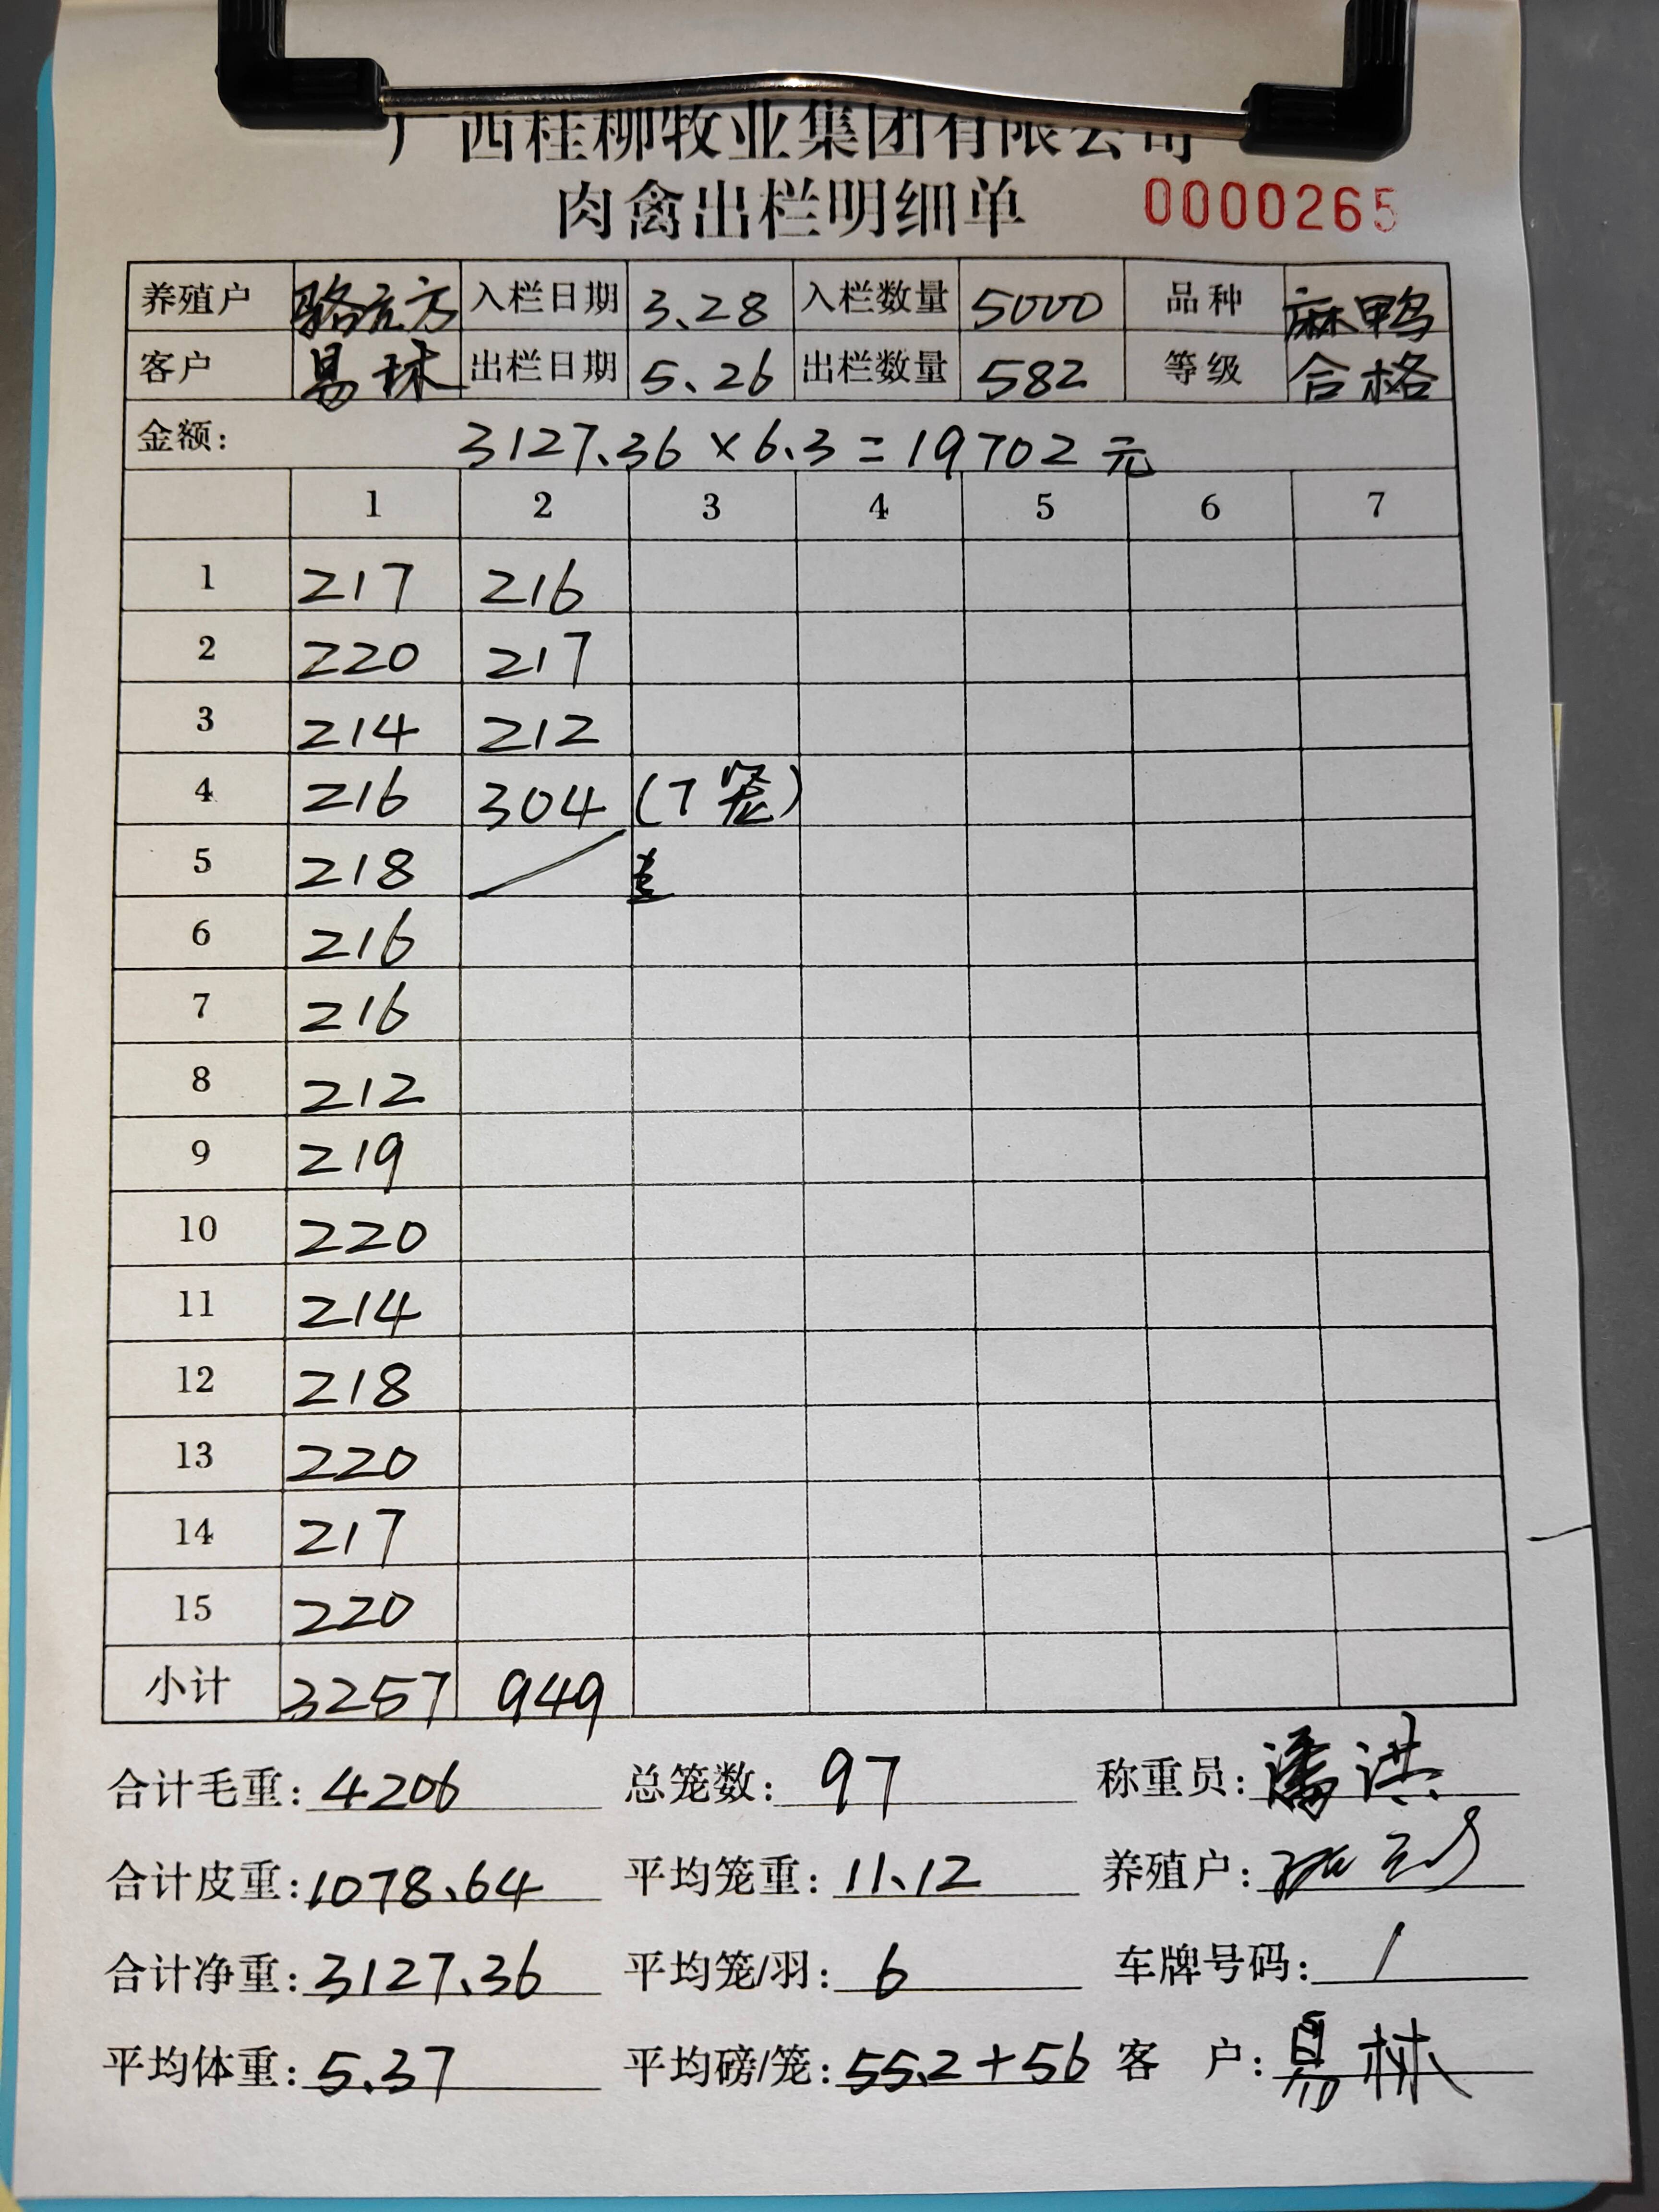 广西桂柳牧业集团有限公司
肉禽出栏明细单 0000265
养殖户 骆立方 入栏日期 3.28 入栏数量 5000 品种 麻鸭
客户 易球 出栏日期 5.26 出栏数量 582 等级 合格
金额: 3127.36×6.3=19702元
1 2 3 4 5 6 7
1 217 216
2 220 217
3 214 212
4 216 304 (7笼)
5 218
6 216
7 216
8 212
9 219
10 220
11 214
12 218
13 220
14 217
15 220
小计 3257 949
合计毛重: 4206 总笼数: 97 称重员: 潘洪
合计皮重: 1078.64 平均笼重: 11.12 养殖户:
合计净重: 3127.36 平均笼/羽: 6 车牌号码: /
平均体重: 5.37 平均磅/笼: 55.2+56 客 户: 易林